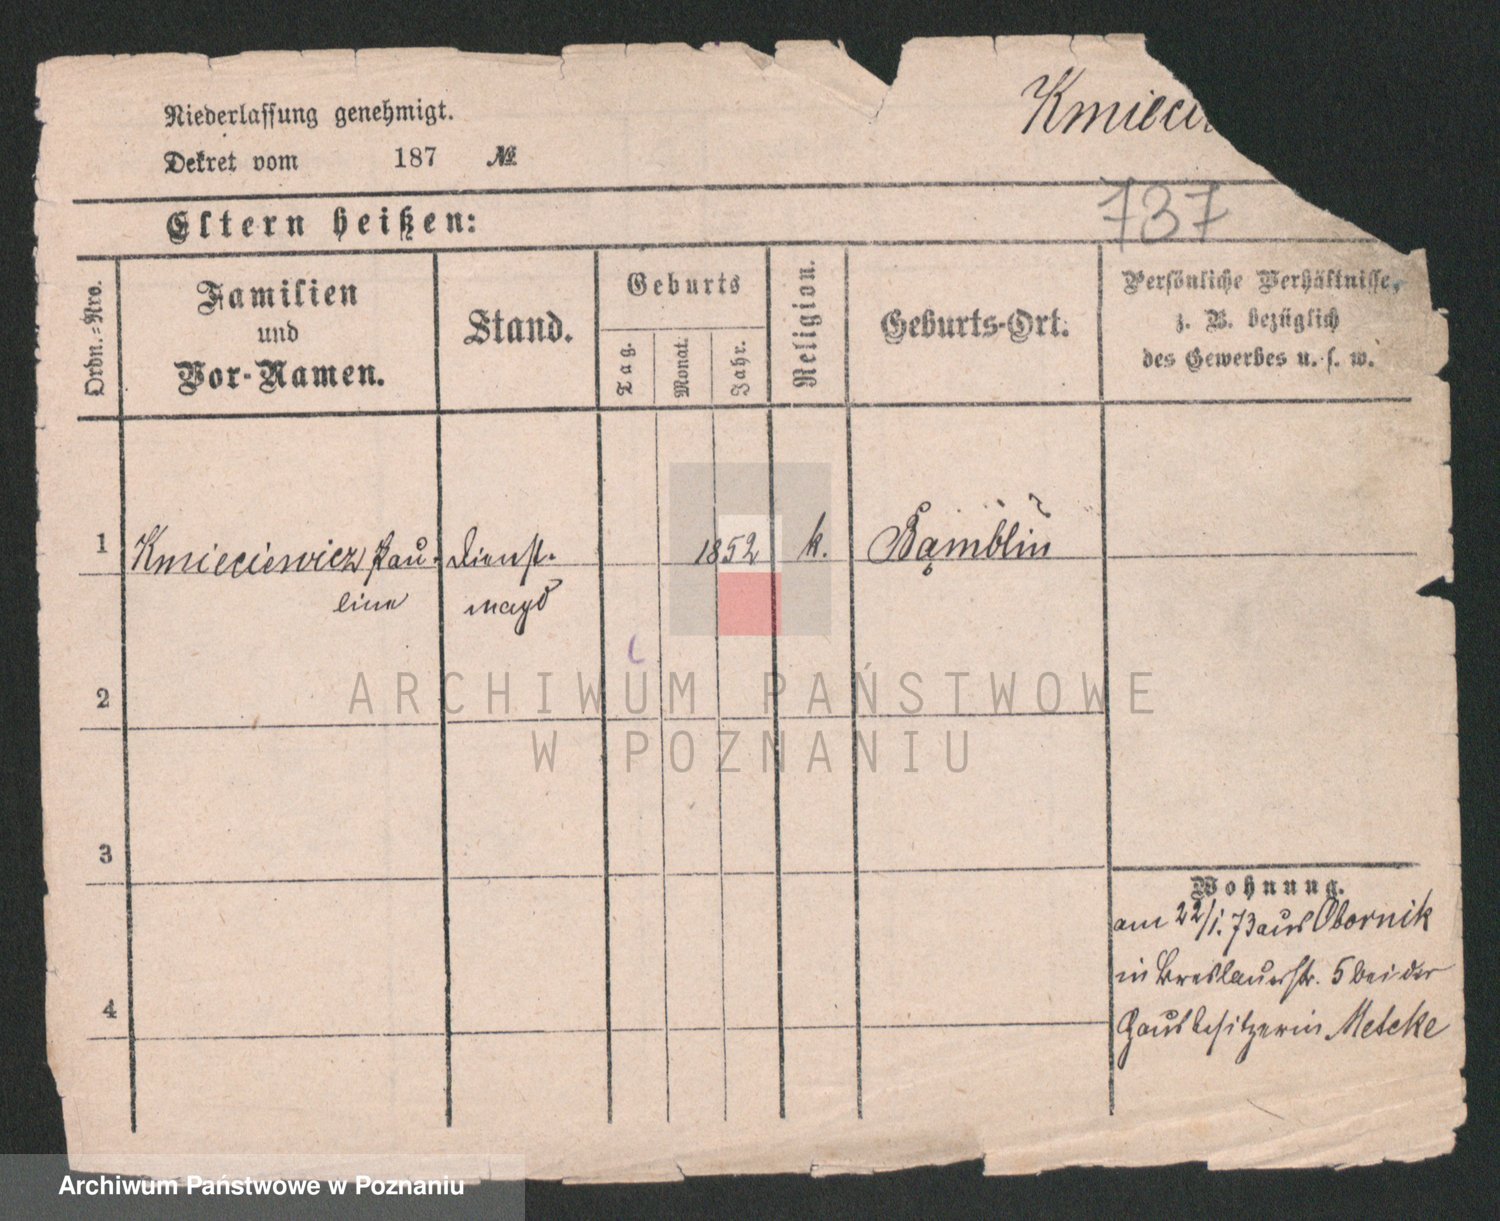 Niederlassung genehmigt.
Dekret vom 187 №
Kmieci
737
Eltern heißen:
Ordn.=Nro.
Familien
und
Vor-Namen.
Stand.
Geburts
Tag.
Monat.
Jahr.
Religion.
Geburts-Ort.
Persönliche Verhältnisse,
z. B. bezüglich
des Gewerbes u. s. w.
1 Kmieciewicz Pau- Dienst- 1852 k. Bąmblin
line magd
2
3
4
Wohnung.
am 22/1. 73 aus Obornik
in Breslauerstr. 5 bei der
Hausbesitzerin Metcke
ARCHIWUM PAŃSTWOWE
W POZNANIU
Archiwum Państwowe w Poznaniu